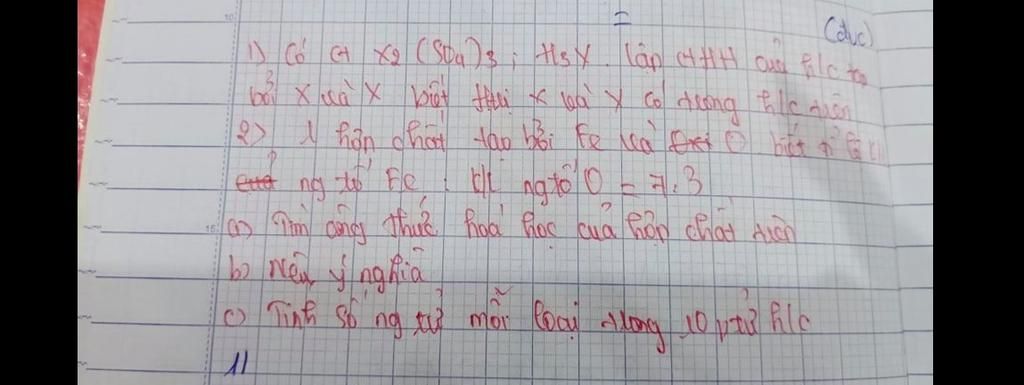 (đvc)
1) Có CT X2 (SO4)3; H3Y. lập CTHH của h/c tạo
bởi X và Y biết X và Y có trong h/c trên
2) 1 hợp chất tạo bởi Fe và O biết tỉ lệ KL
ng tử Fe : KL ng tử O = 7:3
a) Tìm công thức hoá học của hợp chất trên
b) Nêu ý nghĩa
c) Tính số ng tử mỗi loại trong 10 ptử h/c
1)